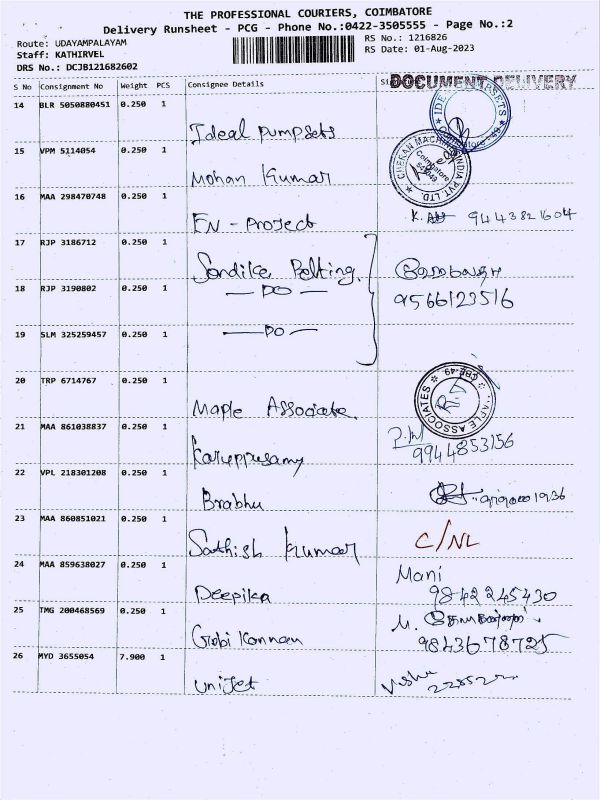 THE PROFESSIONAL COURIERS, COIMBATORE
Delivery Runsheet - PCG - Phone No.:0422-3505555 - Page No.:2
Route: UDAYAMPALAYAM
RS No.: 1216826
Staff: KATHIRVEL
RS Date: 01-Aug-2023
DRS No.: DCJB121682602
S No Consignment No Weight PCS Consignee Details
DOCUMENT DELIVERY
14 BLR 5050880451 0.250 1
Ideal Pumpsets
15 VPM 5114054 0.250 1
CHERAN MACHINES INDIA PVT. LTD.
Coimbatore
Mohan Kumar
16 MAA 298470748 0.250 1
EN - Project
K. 9443821604
17 RJP 3186712 0.250 1
Sondike Belting
18 RJP 3190802 0.250 1
— DO —
9566123516
19 SLM 325259457 0.250 1
— DO —
20 TRP 6714767 0.250 1
CBE-49
ASSOCIATES
Maple Associate
21 MAA 861038837 0.250 1
Karuppusamy
9944853156
22 VPL 218301208 0.250 1
Brabhu
23 MAA 860851021 0.250 1
Sathish Kumar
C/NL
24 MAA 859638027 0.250 1
Mani
Deepika
9842245430
25 TMG 200468569 0.250 1
M.
Gobi Kannan
9843678725
26 MYD 3655054 7.900 1
Unijet